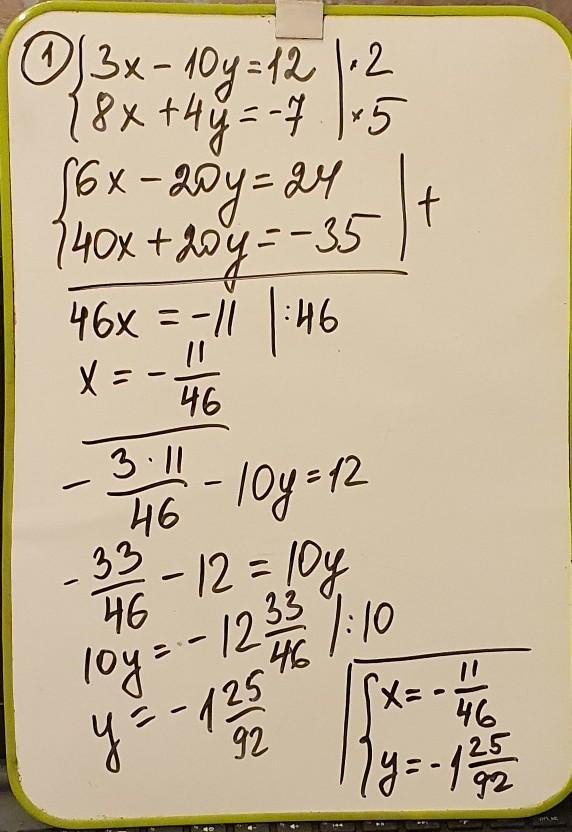 ① { 3x - 10y = 12 | · 2
{ 8x + 4y = -7 | × 5
{ 6x - 20y = 24 | +
{ 40x + 20y = -35 |
46x = -11 | :46
x = - 11/46
- 3·11/46 - 10y = 12
- 33/46 - 12 = 10y
10y = - 12 33/46 | :10
y = - 1 25/92
{ x = - 11/46
{ y = - 1 25/92